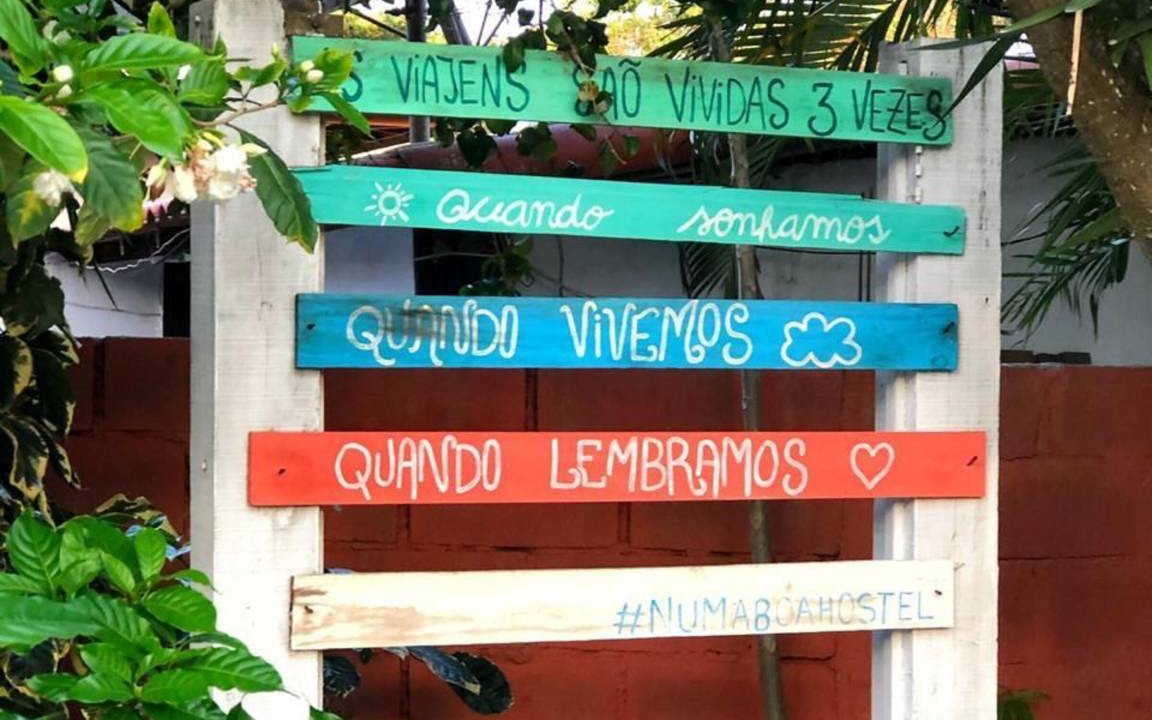 S VIAJENS SAÕ ViViDAS 3 VEZES
Quando sonhamos
QUANDO ViVEMOS
QUANDO LEMBRAMOS
#NUMABOAHOSTEL